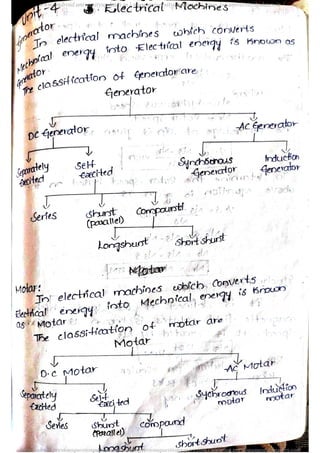 Unit-4 Electrical Machines
Generator
In electrical machines which converts
Mechnical energy into Electrical energy is known as
Generator.
The classification of Generator are
Generator
DC Generator AC Generator
Separately Excited Self Excited Synchronous Generator Induction Generator
Series Shunt (parallel) Compound
Longshunt Short shunt
Motor
Motor:
In electrical machines which converts
Electrical energy into Mechnical energy is known
as Motor
The classification of motor are
Motor
D.C Motor AC Motor
Separately Excited Self Excited Sychronous motor Induction motor
Series Shunt (Parallel) compound
Longshunt shortshunt